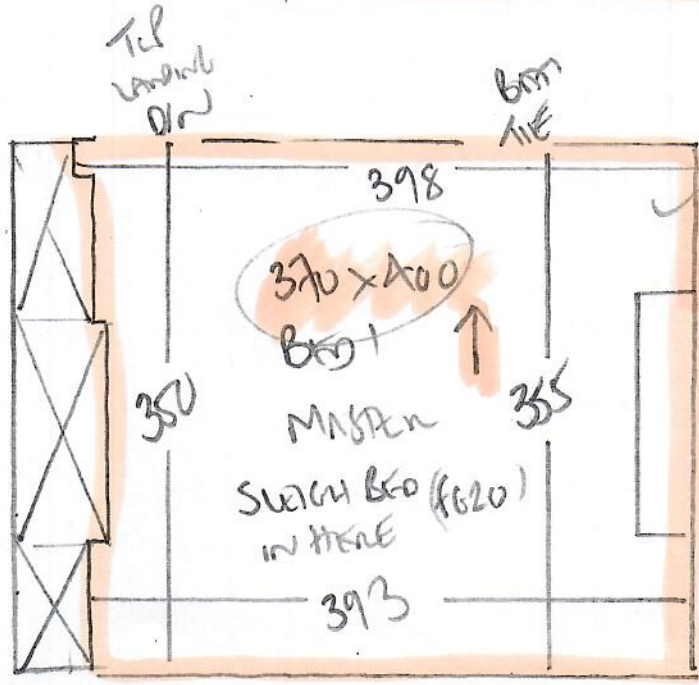 TOP
LANDING
D/N
BATH
TILE
398
370 x 400
BED 1
350
355
MASTER
SLEIGH BED (£620)
IN HERE
393